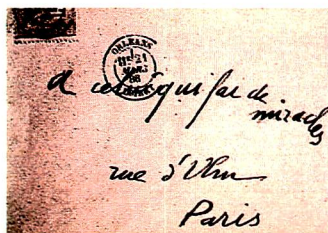 ORLEANS
MARS
a celui qui fai de
miracles
rue d'Ulm
Paris